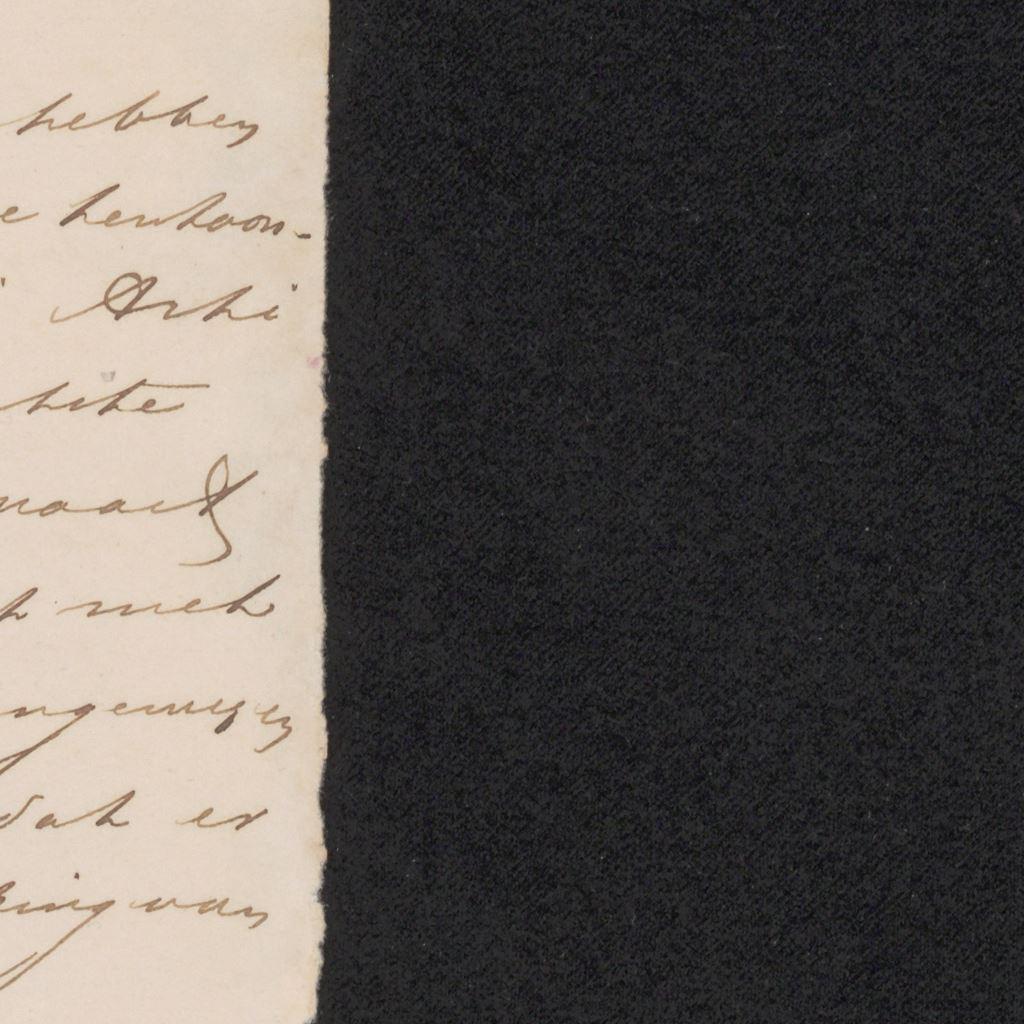 hebben
e tentoon-
i Arti
maar
t met
ngewezen
dat er
king van